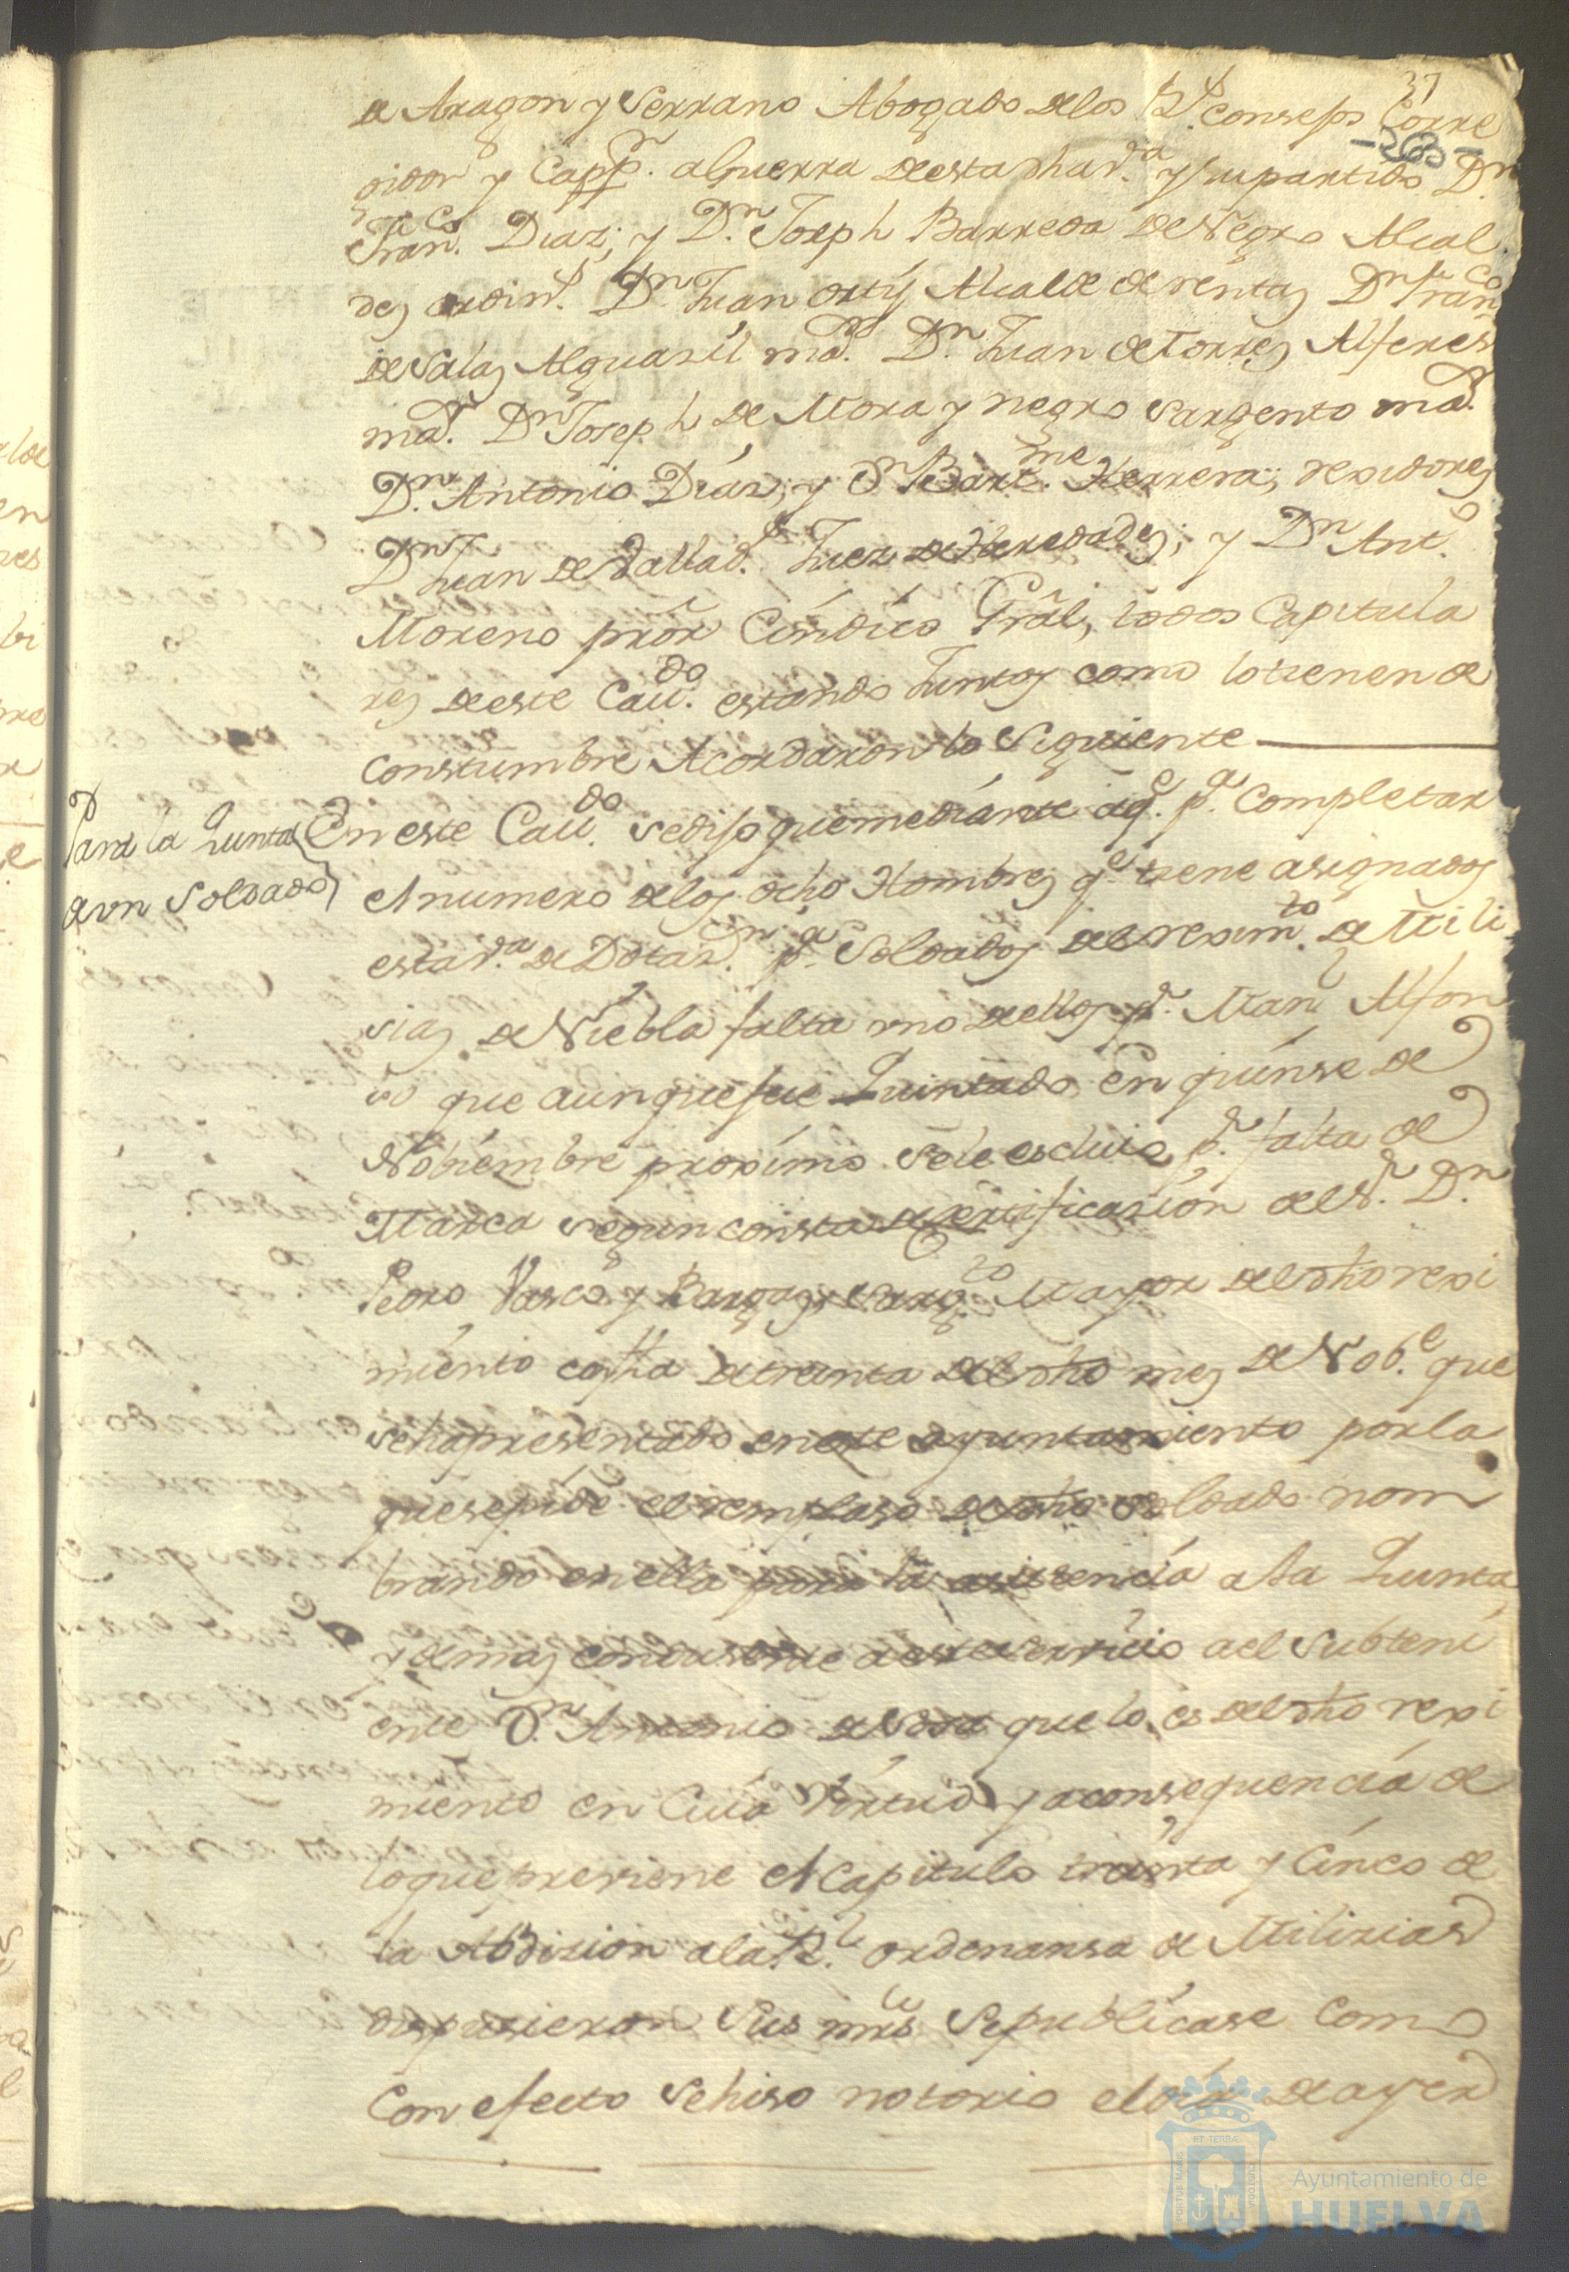 37
de Aragon y Serrano Abogado delos Rs. Consejos Corre
gidor y Capp.n aguerra deesta dha v.a y supartido Dn
Fran.co Diaz; y D.n Joseph Barreda de Negro Alcal
des ordin.s D.n Juan Ortiz Alcalde de rentas Dn Fran.co
de Salas Alguasil ma.or D.n Juan de Torres Alferes
ma.or Dn Joseph de Mora y negro Sargento ma.or
D.n Antonio Diaz; y Dn Bart.me Herrera; rexidores
Dn Juan de Vallad.d Juez de Heredades; y Dn Ant.o
Moreno pror Cindico Gral, todos Capitula
res deeste Cau.do estando Juntos como lotienen de
constumbre Acordaron lo Siguiente
Para la Quinta
de vn Soldado
En este Cau.do sedijo quemediante aq.e p.a Completar
el numero delos ocho Hombres q.e tiene asignados
esta v.a de Dotaz.n p.a Soldados del rexim.to de Mili
sias de Niebla falta vno dellos p.r Man.l Alfon
so que aunquefue Quintado En quinse de
Nobiembre proximo sele escluio p.r falta de
Marca segun consta de sertificasion del S.r D.n
Pedro Vasco y Bargas, Sarg.to Mayor del dho rexi
miento cofha de treinta del dho mes de Nob.e que
seha presentado eneste ayuntamiento por la
quesepide el remplaso de dho Soldado nom
brando en ella para la asistencia ala Quinta
y demas condusente aesteservicio ael Subteni
ente D.n Antonio de que lo es del dho rexi
miento en Cuia Virtud y aconsequencia de
loque previene el Capitulo treinta y Cinco de
la Addizion ala R.l ordenansa de Milizias
dispusieron Sus mrds Sepublicase Como
Con efecto Sehiso notorio el dia de ayer
Ayuntamiento de
HUELVA